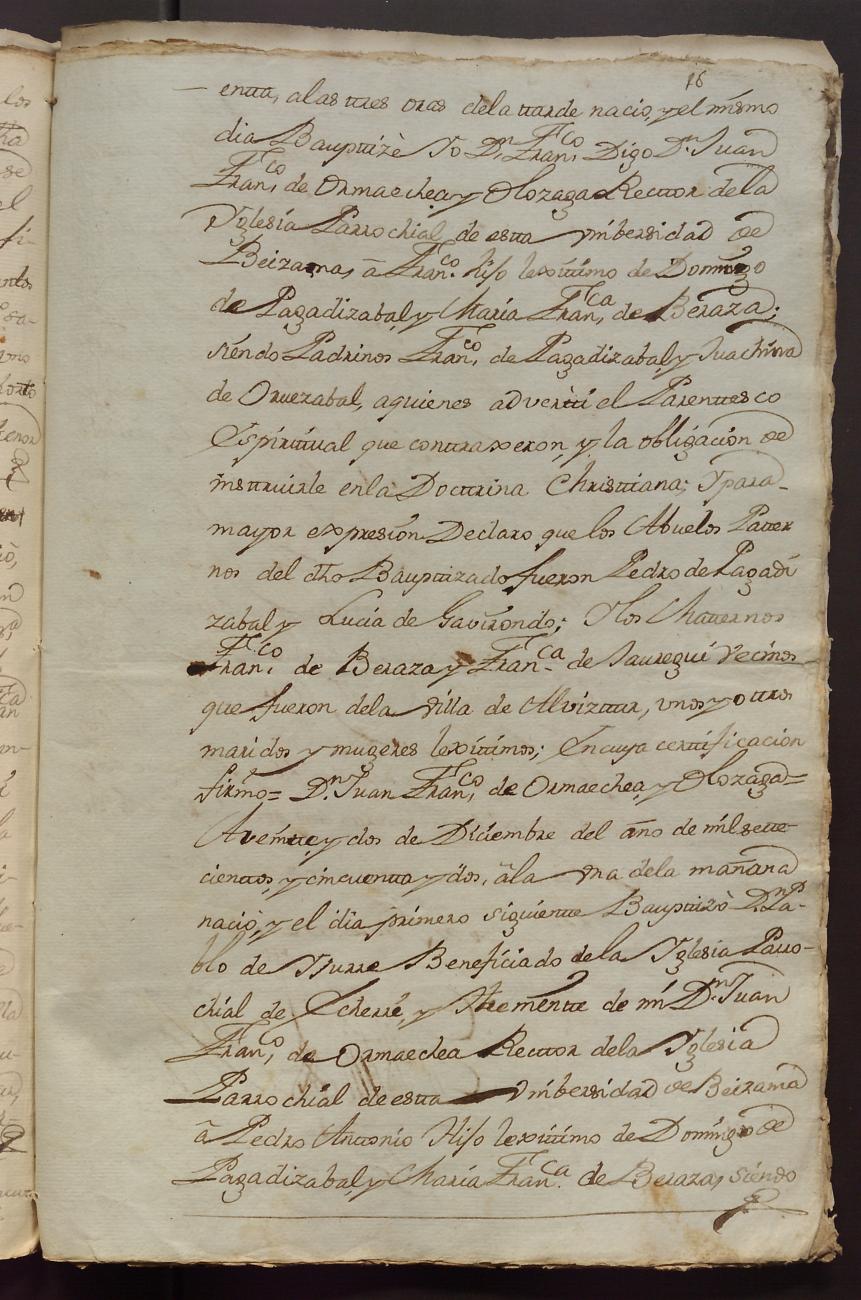 16
entta, a las ttres oras dela ttarde nacio, y el mismo
dia Baupttizè Yo Dn. Franco. Digo Dn. Juan
Franco. de Ormaechea y Olozaga Recttor dela
Yglesia Parrochial de estta Vnibersidad de
Beizama, â Franco. Hijo lexittimo de Domingo
de Pagadizabal, y Maria Franca. de Beraza;
siendo Padrinos Franco. de Pagadizabal, y Juachina
de Oruezabal, aquienes adverttì el Parenttesco
Espirittual que conttraxeron, y la obligación de
insttruirle enla Docttrina Christtiana; Y para
mayor expresión Declaro que los Abuelos Patter
nos del dho Baupttizado fueron Pedro de Pagadi
zabal y Lucia de Gavirondo; Y los Matternos
Franco. de Beraza y Franca. de Jauregui Vecinos
que fueron dela Villa de Alvizttur, vnos y ottros
maridos y mugeres lexittimos; En cuya certtificación
firmo = Dn. Juan Franco. de Ormaechea, y Olozaga =
A veintte, y dos de Diciembre del año de mil sette
cienttos, y cincuentta y dos, â la vna dela mañana
naciò, y el dia primero siguientte Baupttizò Dn. Pa-
blo de Yturre Beneficiado dela Yglesia Parro-
chial de Echerri, y Ttenientte de mi Dn. Juan
Franco. de Ormaechea Recttor dela Yglesia
Parrochial de estta Vnibersidad de Beizama
â Pedro Anttonio Hijo lexittimo de Domingo de
Pagadizabal, y Maria Franca. de Beraza, siendo